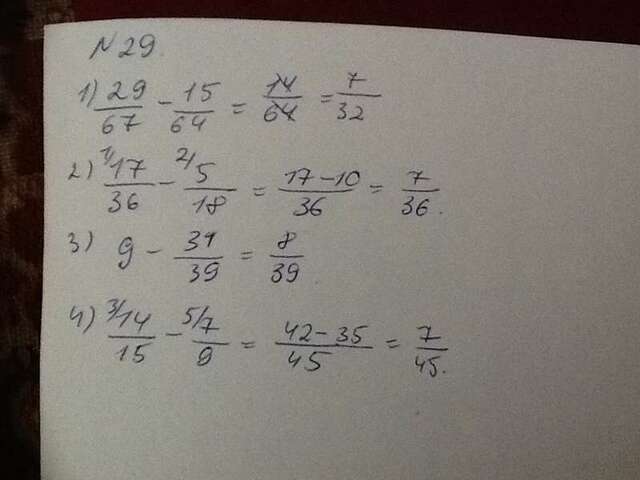 N 29.
1) 29/67 - 15/64 = 14/64 = 7/32
2) 1/ 17/36 - 2/ 5/18 = 17-10/36 = 7/36.
3) 9 - 31/39 = 8/39
4) 3/ 14/15 - 5/ 7/9 = 42-35/45 = 7/45.